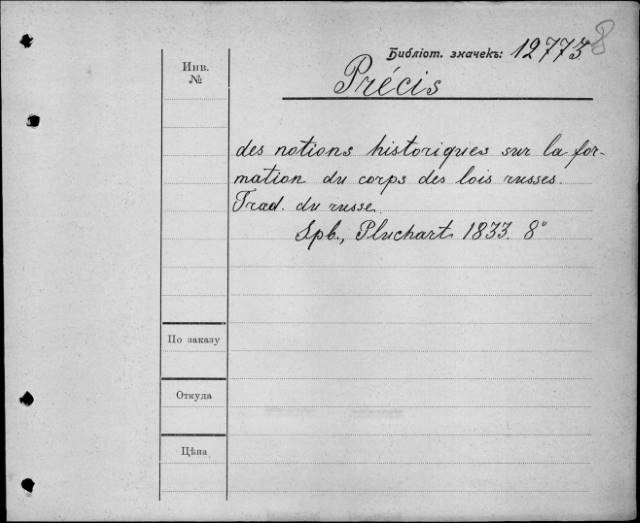 Библіот. значекъ: 12773
8
Инв.
№
Précis
des notions historiques sur la for-
mation du corps des lois russes.
Trad. du russe.
Spb., Pluchart 1833. 8°
По заказу
Откуда
Цѣна